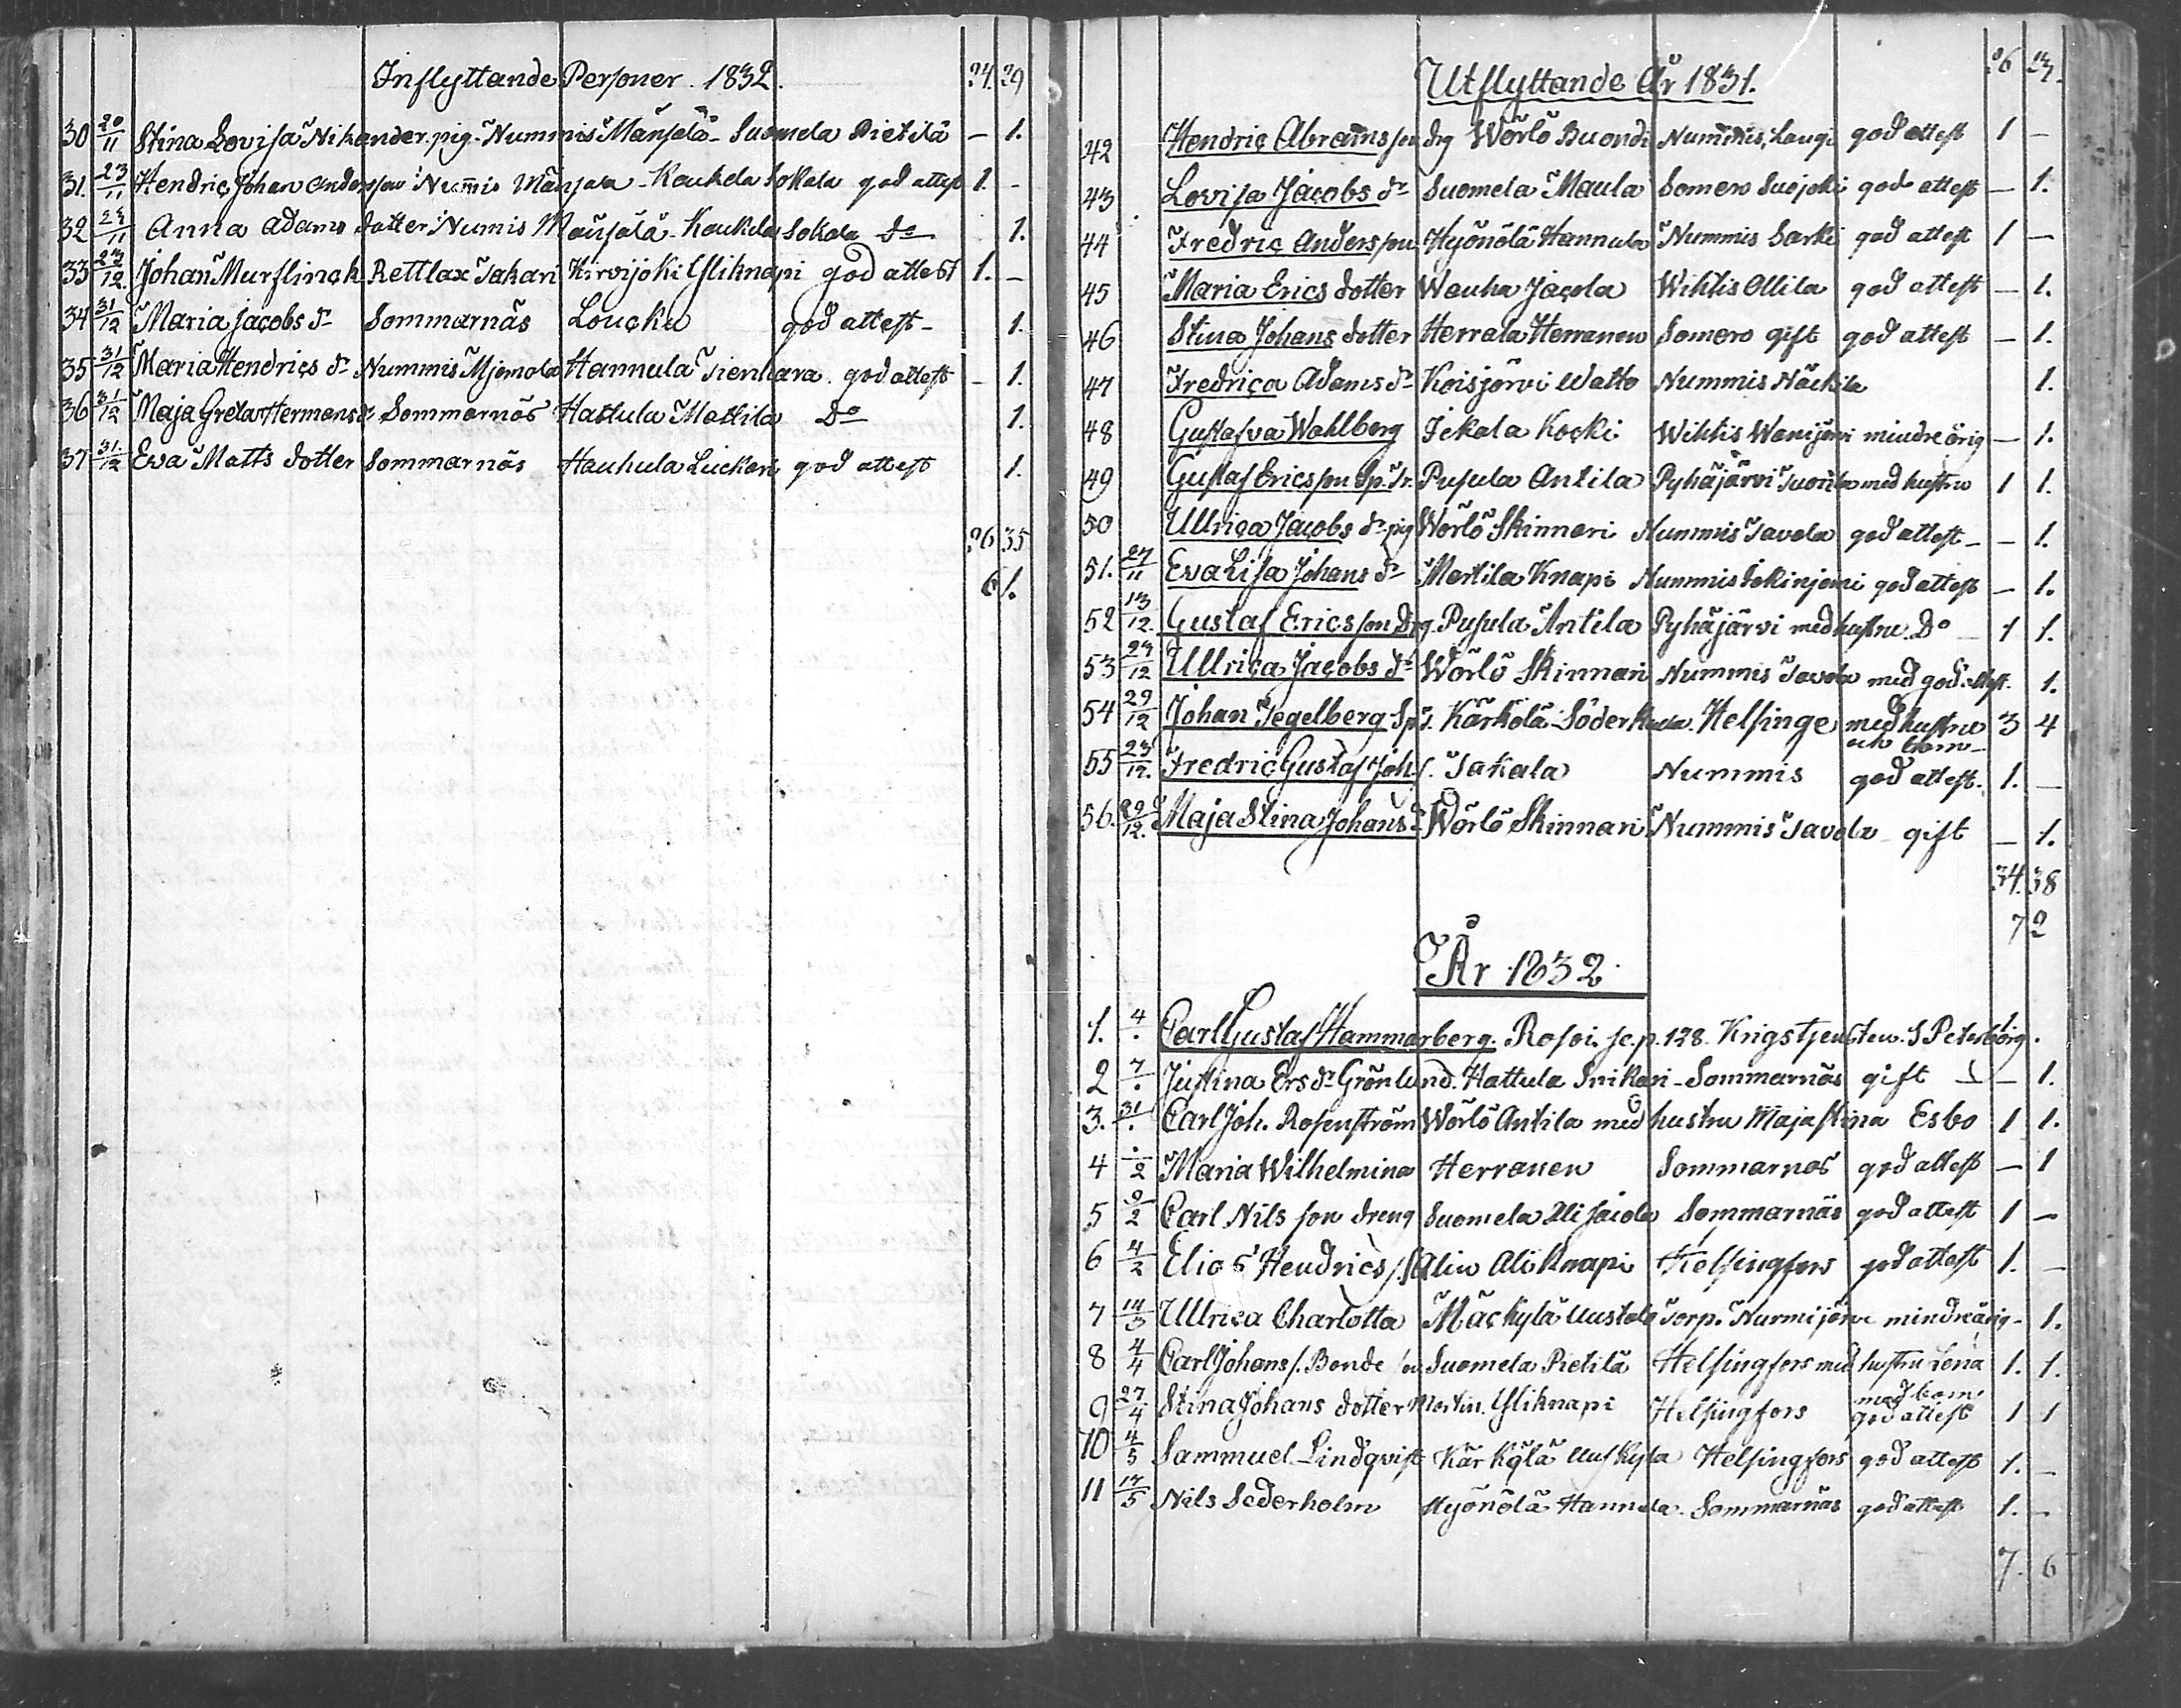 Inflyttande Personer 1832. 24. 29
30 20/11 Stina Lovisa Nikander pig. Nummis Mänsälä Suomela Pietilä — 1.
31. 23/11 Hendric Johan Andersson Nummis Mänsälä Keukela Sokala god attest 1. -
32 23/11 Anna Adams dotter Numis Mänsälä Keukela Sokala Do 1.
33 23/12. Johan Murflinck Rettlax Takari Hirvijoki Yliknapi god attest 1. -
34 31/12 Maria Jacobs dr Sommarnäs Loucku god attest - 1.
35 31/12 Maria Hendrics dr Nummis Mjemola Hannula Tienhara. god attest - 1.
36 31/12 Maja Greta Hermans dr Sommarnäs Hattula Mattila Do 1.
37 31/12 Eva Matts dotter Sommarnäs Hauhula Luckari god attest 1.
26 35
61.
Utflyttande År 1831. 26 23.
42 Hendric Abramsson drg Wörlö Buondi Nummis, Laugi god attest 1 —
43 Lovisa Jacobs dr Suomela Maula Somero Suojoki god attest — 1.
44 Fredric Andersson Hyönölä Hannula Nummis Sarki god attest 1 —
45 Maria Erics dotter Wauha Jacola Wihtis Ollila god attest — 1.
46 Stina Johans dotter Herrala Herranen Somero gift god attest — 1.
47 Fredrica Adams dr Koisjärvi Watto Nummis Näckilä 1.
48 Gustafva Wahlberg Ickala Kocki Wihtis Wanjärvi mindreårig — 1.
49 Gustaf Ericsson Sp. Tr. Pusula Antila Pyhäjärvi med hustru 1 1.
50 Ullrica Jacobs dr pig Wörlö Skinnari Nummis Tavola god attest — — 1.
51. 27/11 Eva Lisa Johans dr Martila Knapi Nummis god attest — 1.
52 13/12. Gustaf Ericsson Drg. Pusula Antila Pyhäjärvi med hustru. Do — 1 1.
53 23/12 Ullrica Jacobs dr Wörlö Skinnari Nummis Tavola med god attest. 1.
54 29/12 Johan Tegelberg Sp. T. Kärkölä Söderkulla. Helsinge med hustru 3 4
och barn —
55 23/12. Fredric Gustaf Joh. s. Takala Nummis god attest. 1. —
56. 29/12. Maja Stina Johans dr Wörlö Skinnari Nummis Tavola gift — 1.
34. 38
72
År 1832.
1. 4/. Carl Gustaf Hammarberg. Rosoi. sc. p. 128. Krigstjensten. S Petersborg. 1
2 7/. Justina Ers dr Grönlund. Hattula Snikari - Sommarnäs gift — 1.
3. 31/. Carl Joh. Rosenström Wörlö Antila med hustru Maja Stina Esbo 1 1.
4 ./2 Maria Wilhelmina Herranen Sommarnäs god attest — 1
5 2/2 Carl Nils son dreng Suomela Sommarnäs god attest 1 —
6 4/2 Elias Hendrics s. Alin Ali Knapi Helsingfors god attest 1. —
7 14/3 Ullrica Charlotta Mäckylä Uustalo Torp. Nurmijärvi mindreårig - 1.
8 4/4 Carl Johans s. Bonde son Suomela Pietilä Helsingfors med hustru Lena 1. 1.
9 27/4 Stina Johans dotter Martin. Yliknapi Helsingfors med barn god attest 1 1
10 4/5 Sammuel Lindqvist Kärkölä Uuskylä Helsingfors god attest 1. —
11 17/5 Nils Sederholm Hyönölä Hannula. Sommarnäs god attest 1. —
7. 6